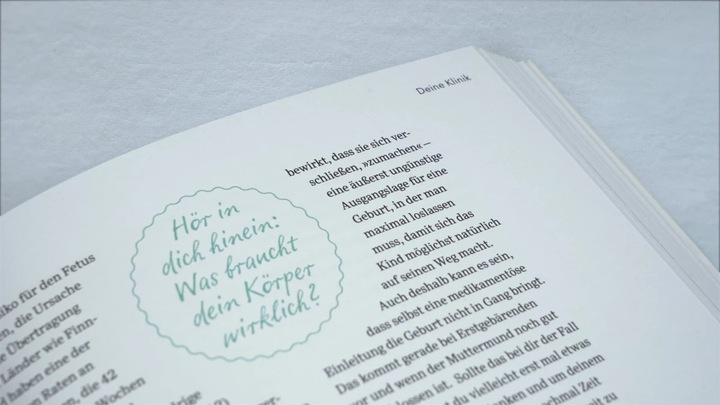 Deine Klinik
iko für den Fetus
die Ursache
Übertragung
Länder wie Finn-
haben eine der
Raten an
die 42
Wochen
Hör in
dich hinein:
Was braucht
dein Körper
wirklich?
bewirkt, dass sie sich ver-
schließen, »zumachen« –
eine äußerst ungünstige
Ausgangslage für eine
Geburt, in der man
maximal loslassen
muss, damit sich das
Kind möglichst natürlich
auf seinen Weg macht.
Auch deshalb kann es sein,
dass selbst eine medikamentöse
Einleitung die Geburt nicht in Gang bringt.
Das kommt gerade bei Erstgebärenden
vor und wenn der Muttermund noch gut
lossen ist. Sollte das bei dir der Fall
du vielleicht erst mal etwas
anken und um deinem
chmal Zeit
zu